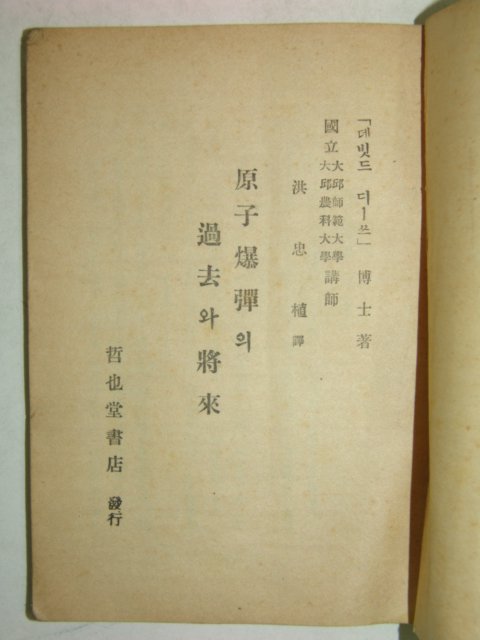 「데빗드 디ー쯔」博士著
國立 大邱師範大學 大邱農科大學 講師
洪忠植 譯
原子爆彈의
過去와將來
哲也堂書店 發行